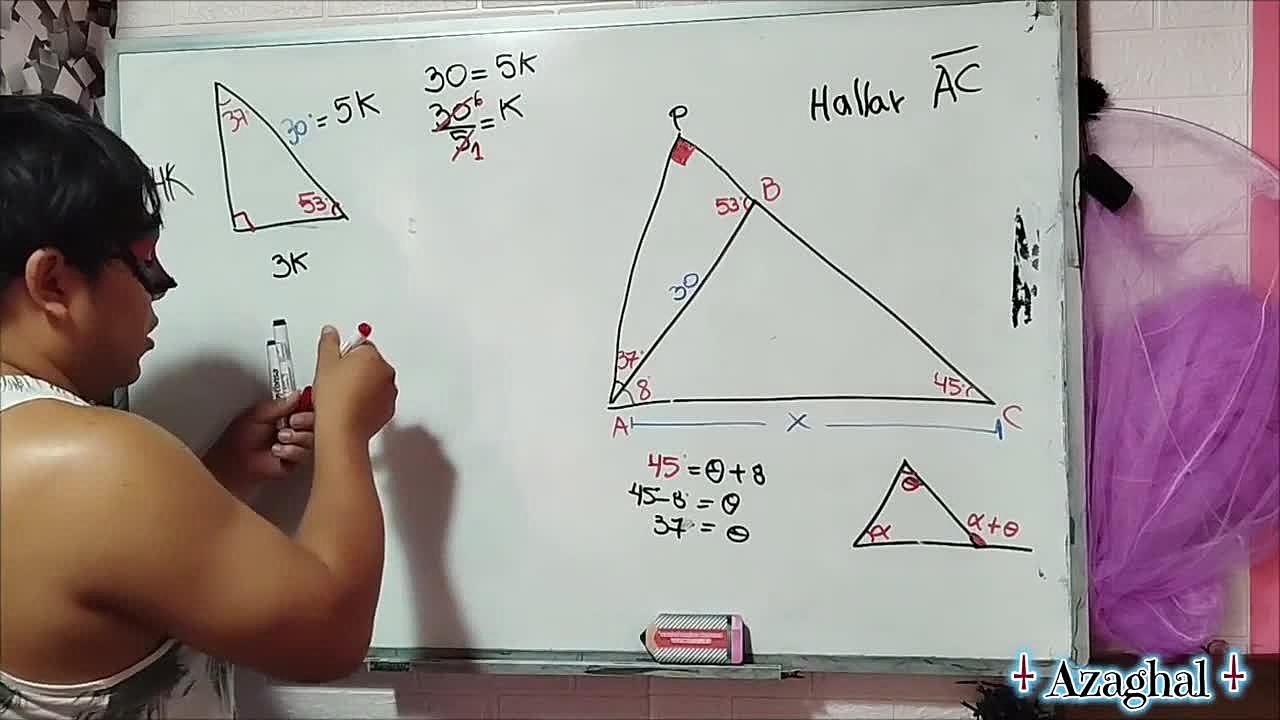 37°
30 = 5K
4K
53°
3K
30 = 5K
30 6 = K
5 1
Hallar AC
P
B
53°
30
37°
8°
45°
A
x
C
45° = θ + 8
45 - 8° = θ
37° = θ
θ
α
α + θ
Azaghal